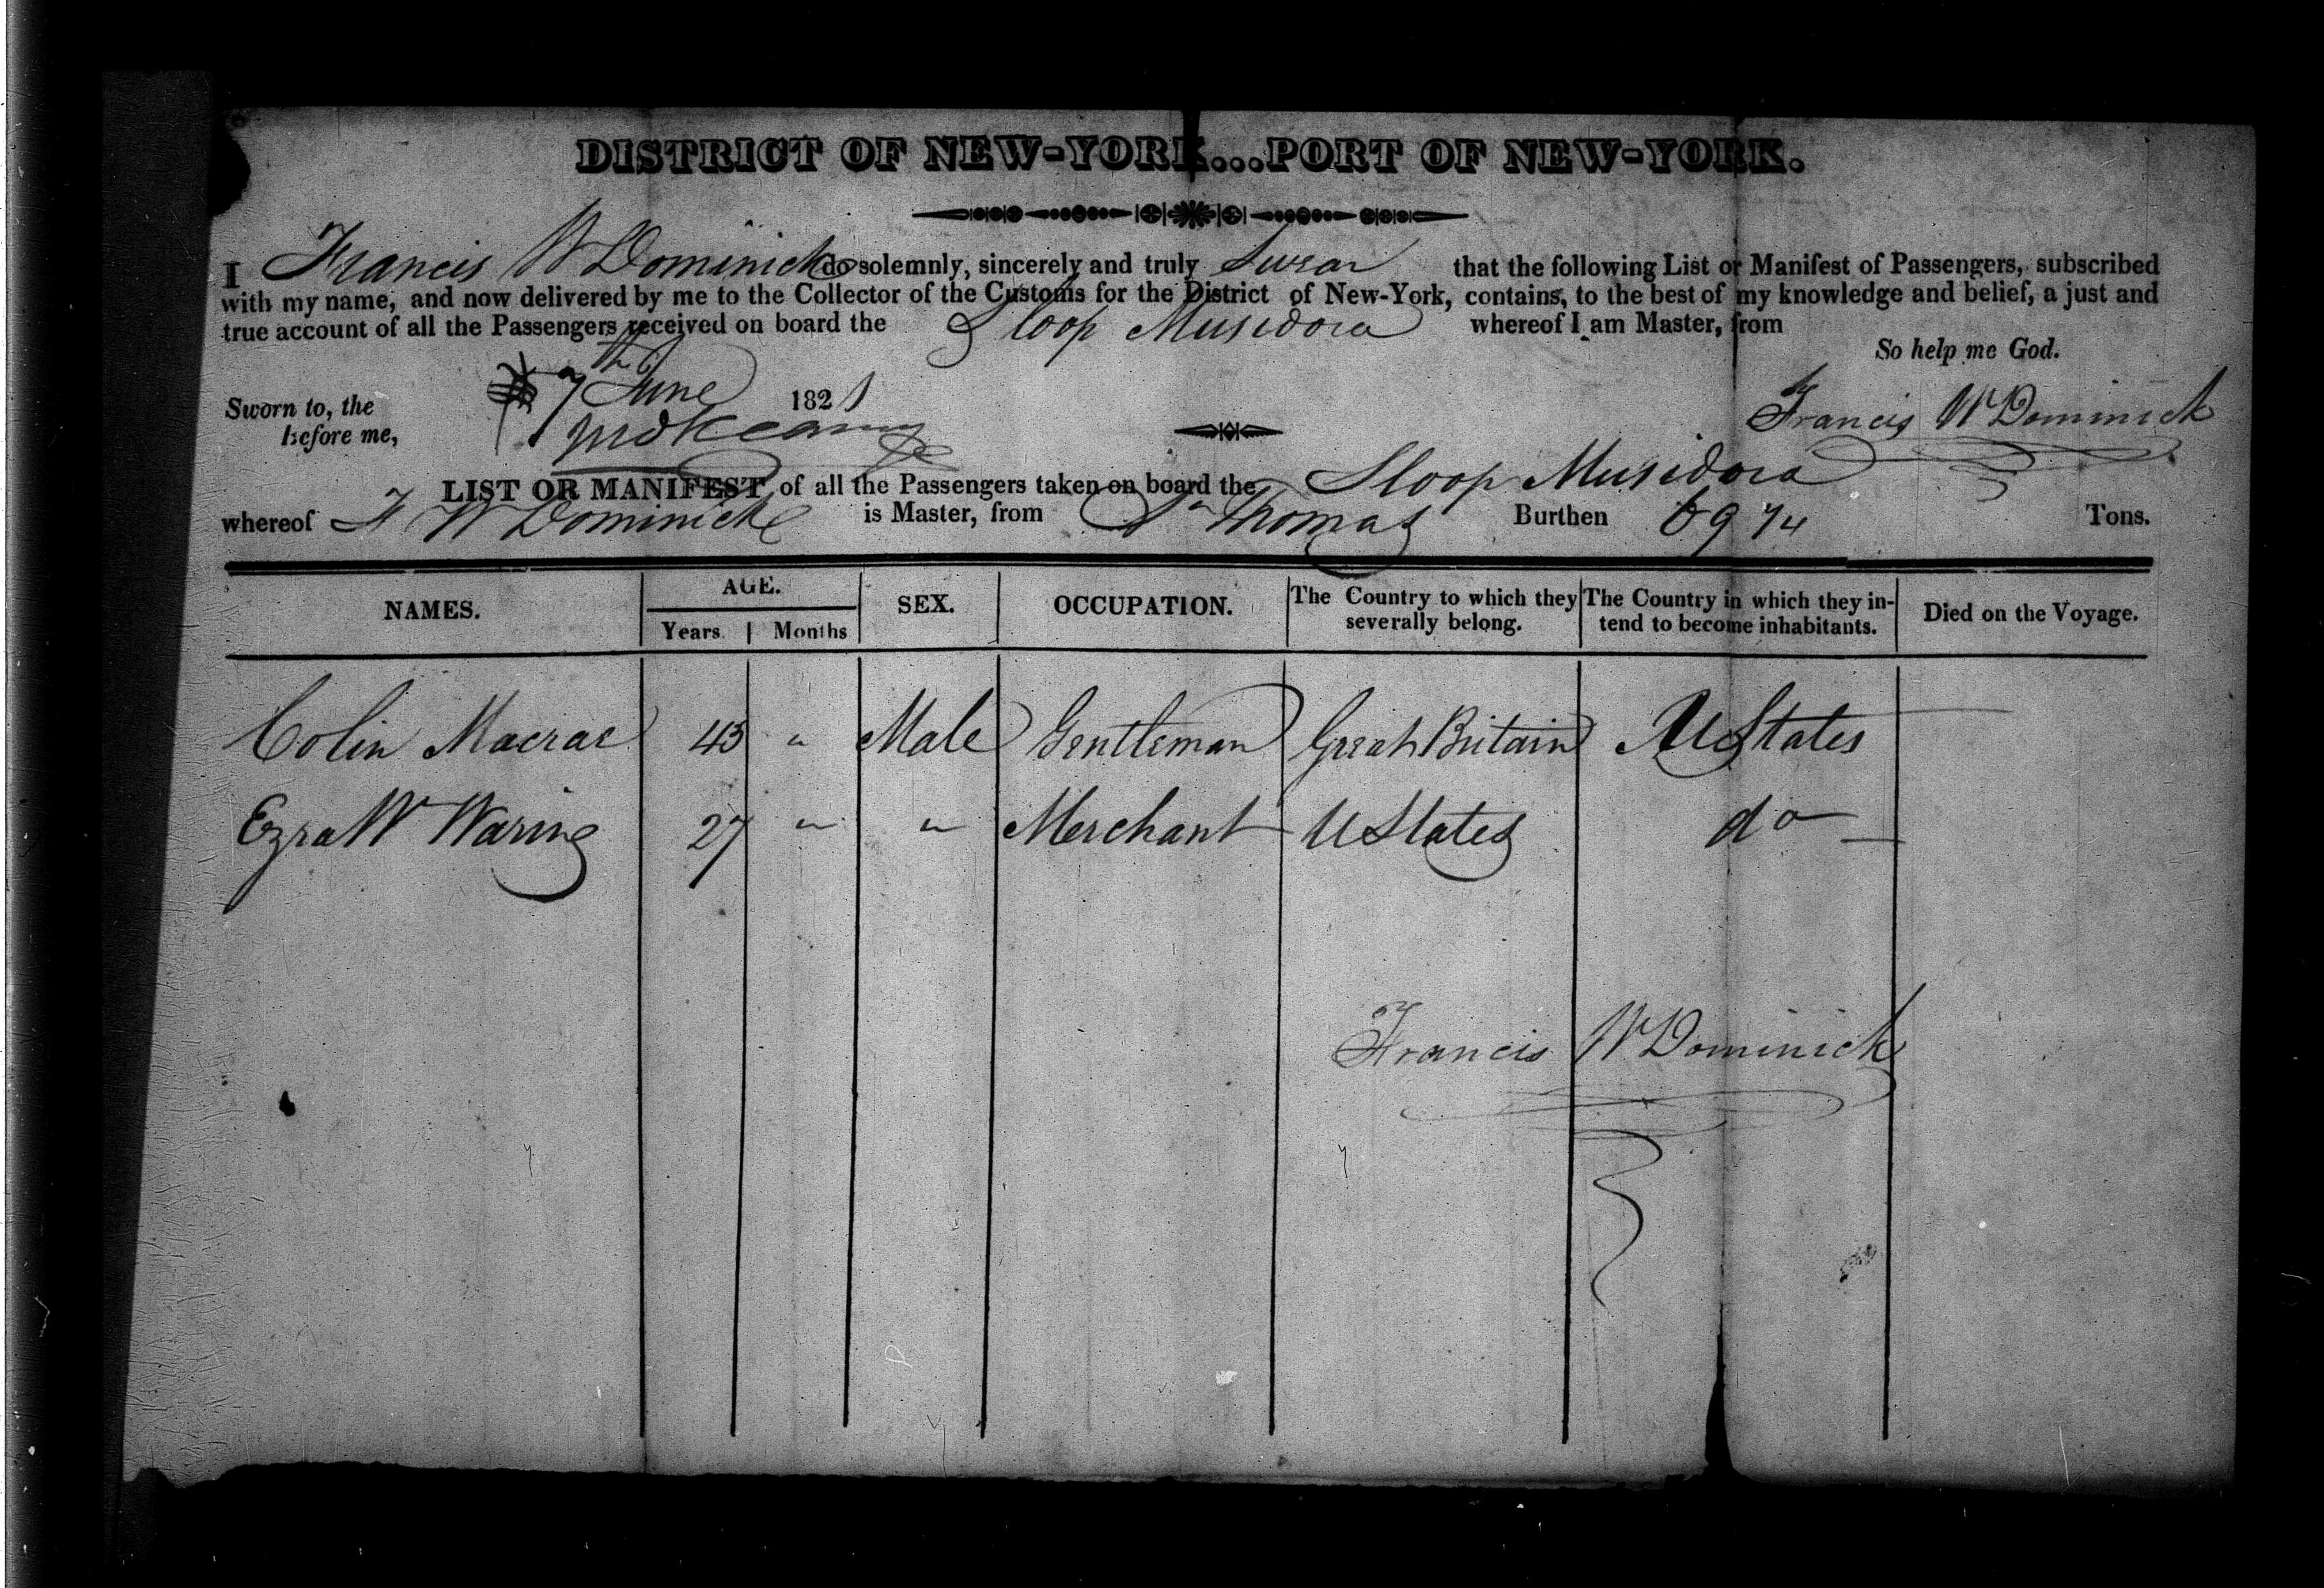 DISTRICT OF NEW-YORK...PORT OF NEW-YORK.
I Francis W Dominick do solemnly, sincerely and truly Swear that the following List or Manifest of Passengers, subscribed
with my name, and now delivered by me to the Collector of the Customs for the District of New-York, contains, to the best of my knowledge and belief, a just and
true account of all the Passengers received on board the Sloop Musidora whereof I am Master, from
So help me God.
Sworn to, the 7th June 1821
before me,
Francis W Dominick
LIST OR MANIFEST of all the Passengers taken on board the Sloop Musidora
whereof F W Dominick is Master, from St Thomas Burthen 69 74 Tons.
NAMES. AGE. Years. Months SEX. OCCUPATION. The Country to which they severally belong. The Country in which they intend to become inhabitants. Died on the Voyage.
Colin Macrae 43 " Male Gentleman Great Britain U States
Ezra W Waring 27 " " Merchant U States do
Francis W Dominick